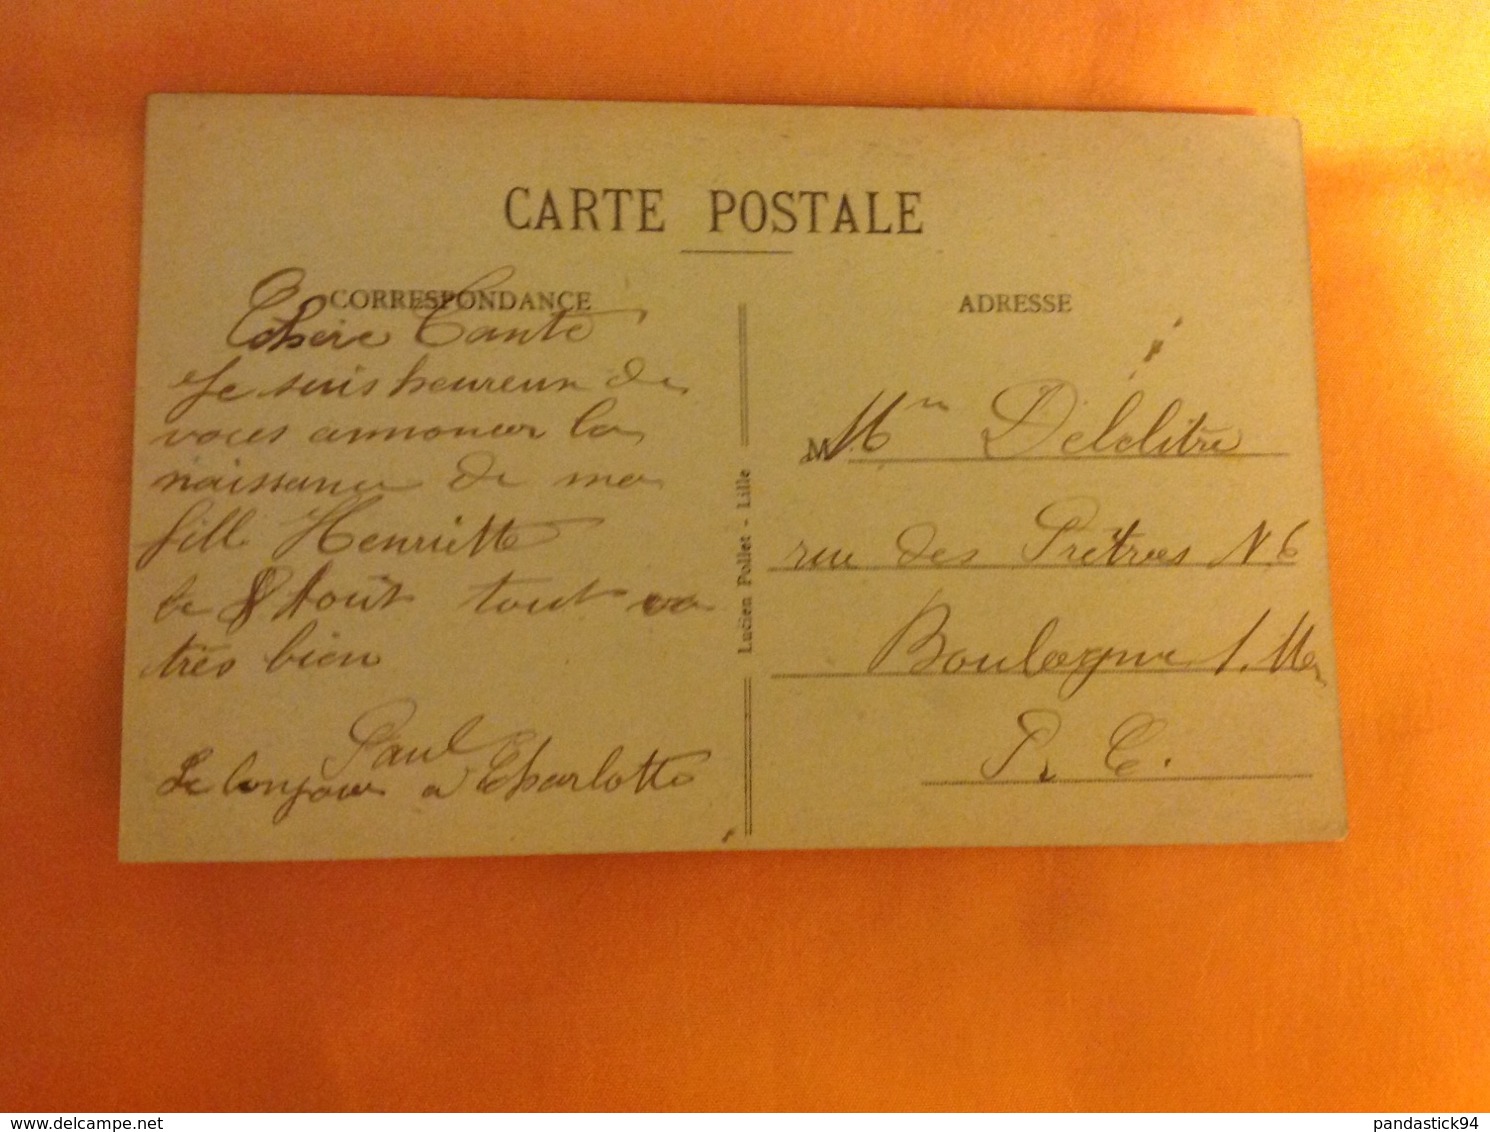 CARTE POSTALE
CORRESPONDANCE
Chère Tante
Je suis heureux de
vous annoncer la
naissance de ma
fille Henriette
le 8 Août tout va
très bien
Paul
Le bonjour a Charlotte
Lucien Pollet - Lille
ADRESSE
M Mme Delelitre
rue des Prêtres N. 6
Boulogne s. Mer
P. C.
delcampe.net
pandastick94